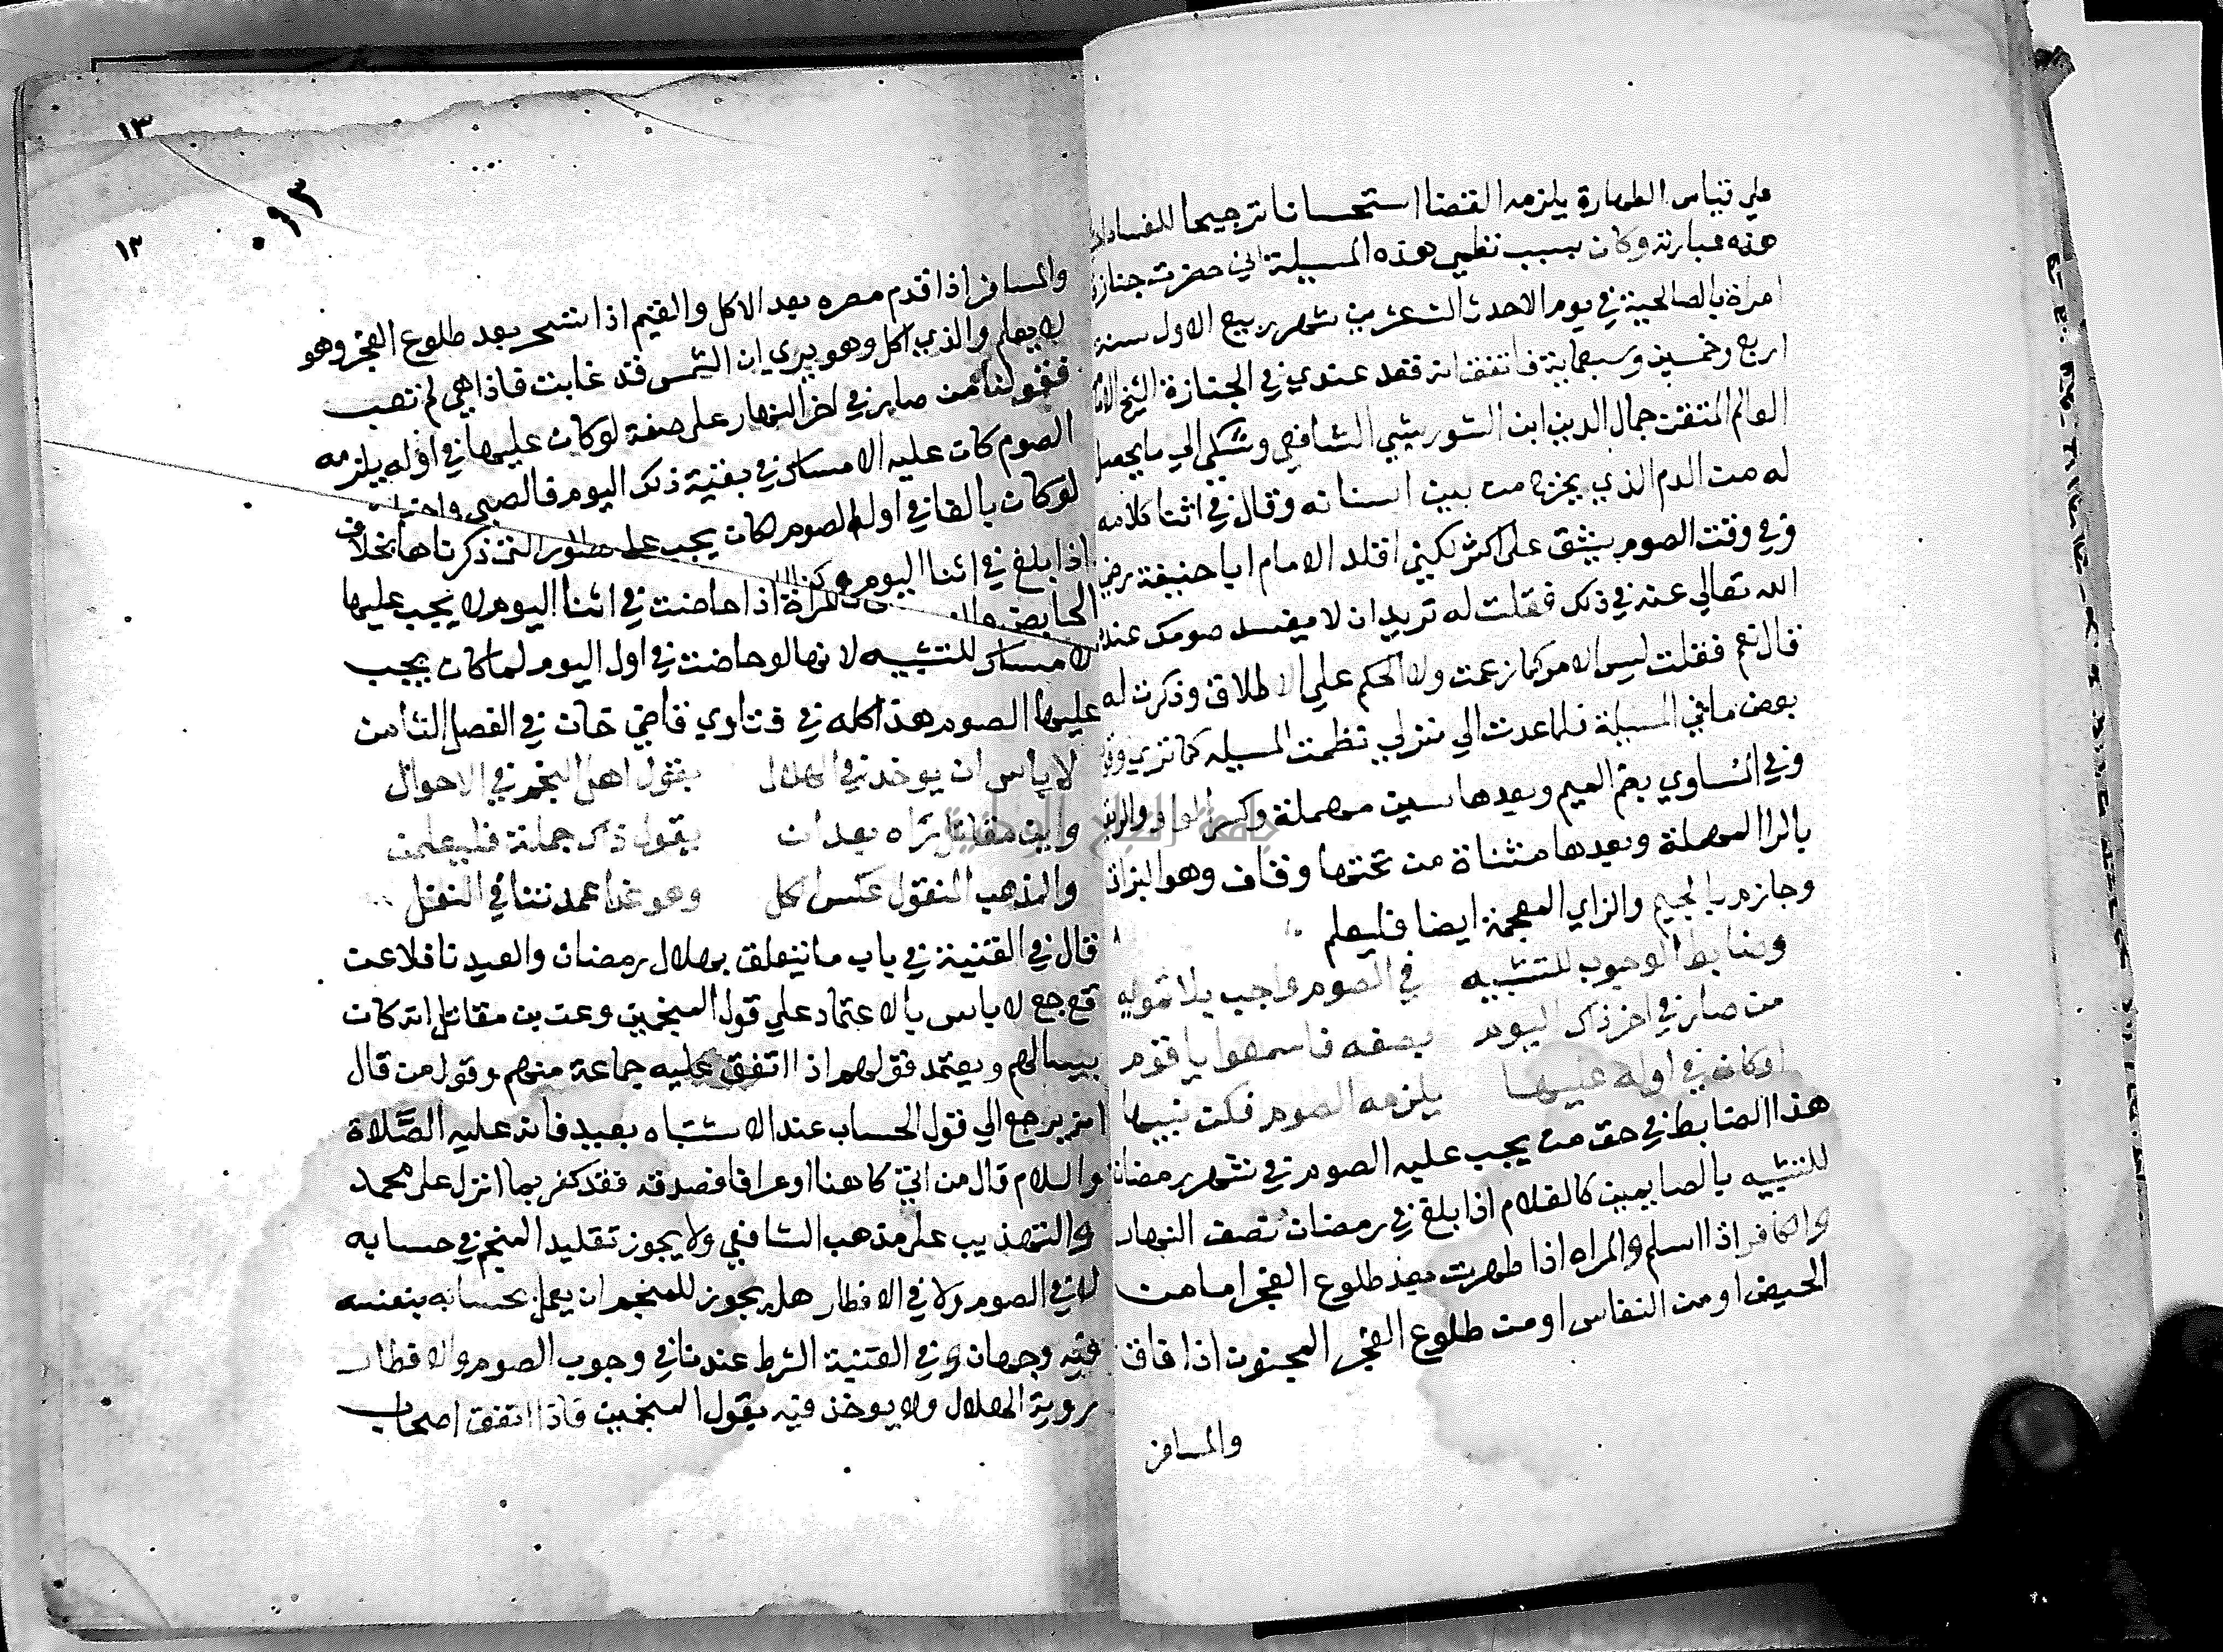 علي قياس الطهارة يلزمه القضا استحسانا ترجيحا للفساد
هذه عبارته وكان سبب نظمي هذه المسيلة اني حضرت جنازة
امراة بالصالحية في يوم الاحد عشرين شهر ربيع الاول سنة
اربع وخمسين وسبعماية فاتفق انه قعد عندي في الجنازة الشيخ الامام
العالم المتقن جمال الدين ابن الشوريشي الشافعي وشكي الي ما يحصل
له من الدم الذي يخرج من بين اسنانه وقال في اثنا كلامه
وفي وقت الصوم يشق علي اكثر لكنني اقلد الامام ابا حنيفة رضي
الله تعالي عنه في ذلك فقلت له تريد ان لا يفسد صومك عنده
قال نعم فقلت ليس الامر كما زعمت ولا الحكم علي الاطلاق وذكرت له
بعض ما في المسيلة فلما عدت الي منزلي نظمت المسيله كما تري وفي
وفي المساوي بضم الميم وبعدها سين مهملة وكسر الواو والريق
بالرا المهملة وبعدها مثناة من تحتها وقاف وهو البزاق
وجازم بالجيم والزاي المعجمة ايضا فليعلم
وضابط الوجوب للتشبيه في الصوم واجب بلا تمويه
من صار في اخر ذاك اليوم بصفه فاسمعوا يا قوم
لو كان في اوله عليها يلزمه الصوم فكن نبيها
هذا الضابط في حق من يجب عليه الصوم في شهر رمضان
للتشبيه بالصايمين كالغلام اذا بلغ في رمضان نصف النهار
والكافر اذا اسلم والمراه اذا طهرت بعد طلوع الفجر اما من
الحيض او من النفاس او من طلوع الفجر المجنون اذا فاق
والمسافر
١٣
٩٣
١٣
والمسافر اذا قدم مصره بعد الاكل والقيم اذا تسحر بعد طلوع الفجر وهو
لا يعلم والذي اكل وهو يري ان الشمس قد غابت فاذا هي لم تغب
فنقول من صار في اخر النهار علي صفة لو كان عليها في اوله يلزمه
الصوم كان عليه الامساك في بقية ذلك اليوم فالصبي
لو كان بالغا في اول الصوم لكان يجب عليه ذكرناها بخلاف
اذا بلغ في اثنا اليوم
الحايض المراة اذا حاضت في اثنا اليوم لا يجب عليها
الامساك للتشبيه لانها لو حاضت في اول اليوم لما كان يجب
عليها الصوم هذا كله في فتاوي قاضي خان في الفصل الثامن
لا باس ان يوخذ في الهلال بقول اهل النجم في الاحوال
وابن مقاتل يراه بعد ان يقول ذاك جملة فليعلمن
والمذهب المنقول عكس الكل وهو غدا عمدتنا في النقل
قال في القنية في باب ما يتعلق بهلال رمضان والعيد ناقلا عن
قع جع لا باس بالاعتماد علي قول المنجمين وعن بن مقاتل انه كان
يسالهم ويعتمد قولهم اذا اتفق عليه جماعة منهم وقول من قال
انه يرجع الي قول الحساب عند الاشتباه بعيد فانه عليه الصلاة
والسلام قال من اتي كاهنا او عرافا فصدقه فقد كفر بما انزل علي محمد
والتهذيب علي مذهب الشافعي ولا يجوز تقليد المنجم في حسابه
لا في الصوم ولا في الافطار هل يجوز للمنجم ان يعمل بحسابه بنفسه
فيه وجهان وفي القنية الشرط عندنا في وجوب الصوم والافطار
روية الهلال ولا يوخذ فيه بقول المنجمين فاذا اتفق اصحاب